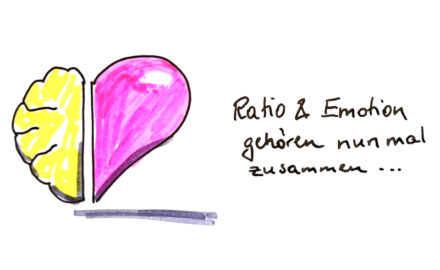 Ratio & Emotion
gehören nun mal
zusammen ...